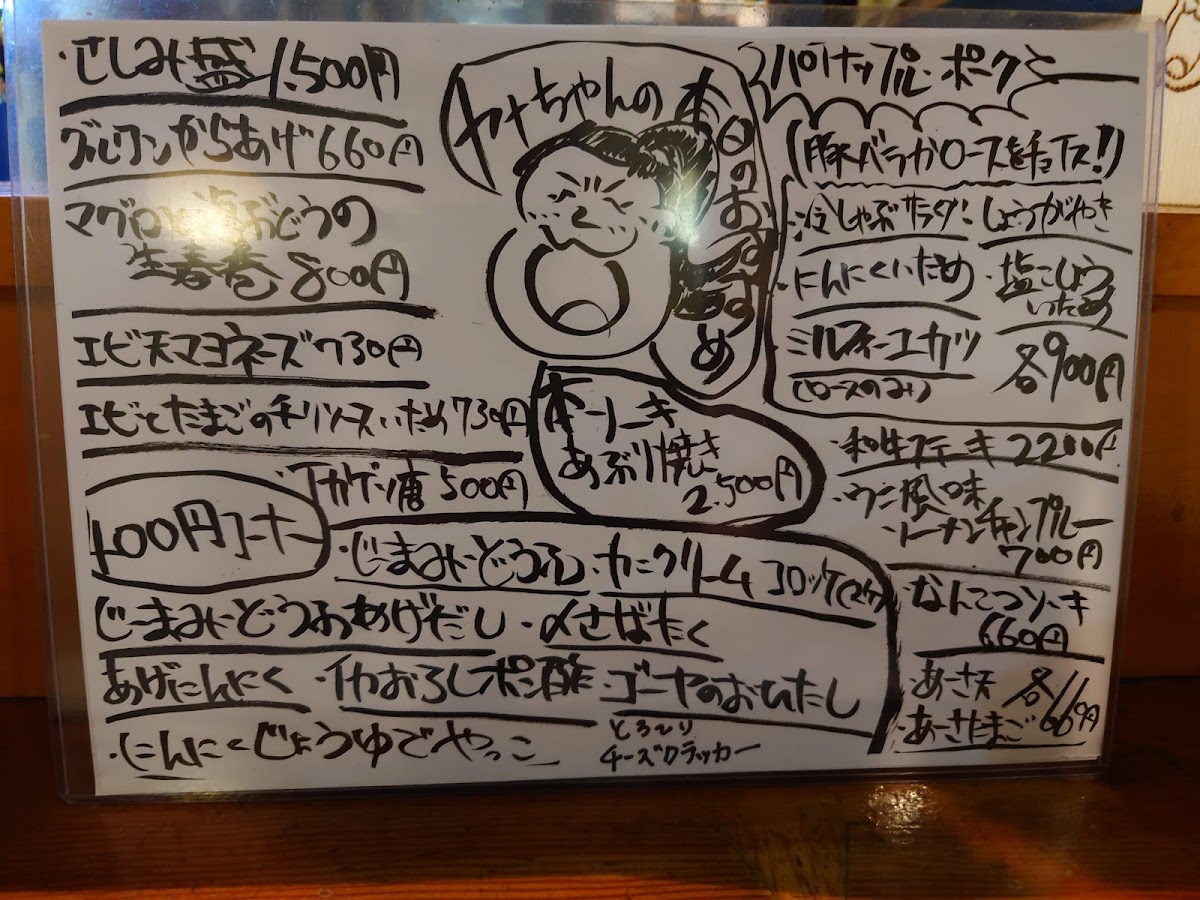 ヤナちゃんの本日のおすすめ
・さしみ盛 1,500円
グルクンからあげ 660円
マグロと海ぶどうの
生春巻 800円
エビ天マヨネーズ 730円
エビとたまごのチリソースいため 730円
イカゲソ唐 500円
本ソーキ
あぶり焼き
2,500円
パイナップル・ポーク
(豚バラかロースを チョイス!)
・冷しゃぶサラダ・しょうがやき
・にんにくいため ・塩こしょう
いため
ミルフィーユカツ
(ロースのみ)
各900円
・和牛ステーキ 2200円
・ウニ風味
ソーメンチャンプルー
700円
・なんこつソーキ
660円
・あーさ天
・あーさたまご
各660円
400円コーナー
・じーまみーどうふ ・カニクリームコロッケ
じーまみーどうふあげだし ・〆さばたく
あげにんにく ・イカおろしポン酢 ・ゴーヤのおひたし
・にんにくじょうゆでやっこ
とろ〜り
チーズクラッカー